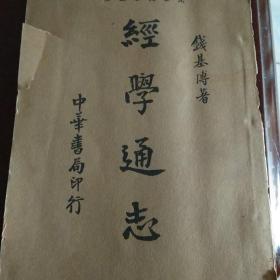 錢基博著
經學通志
中華書局印行